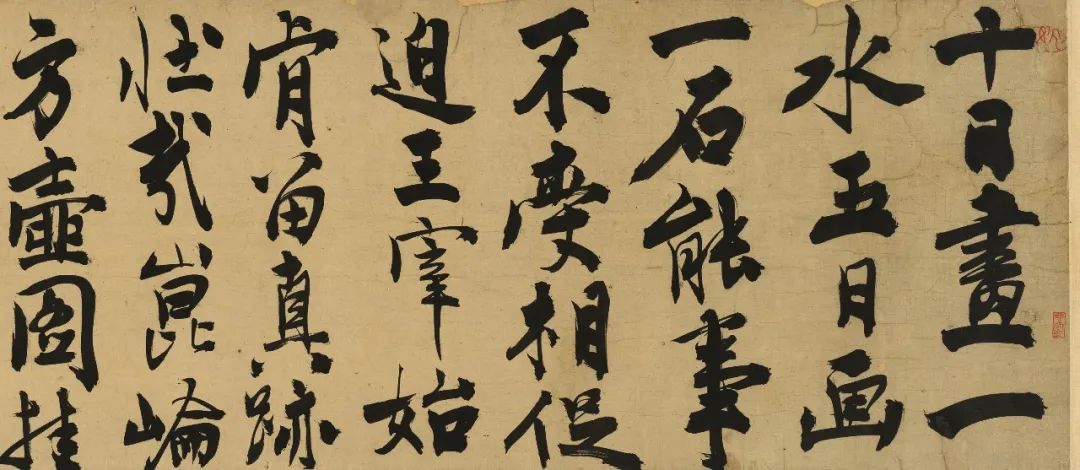 十日畫一
水五日画
一石能事
不受相促
迫王宰始
肯留真跡
壮哉崑崘
方壺圖挂